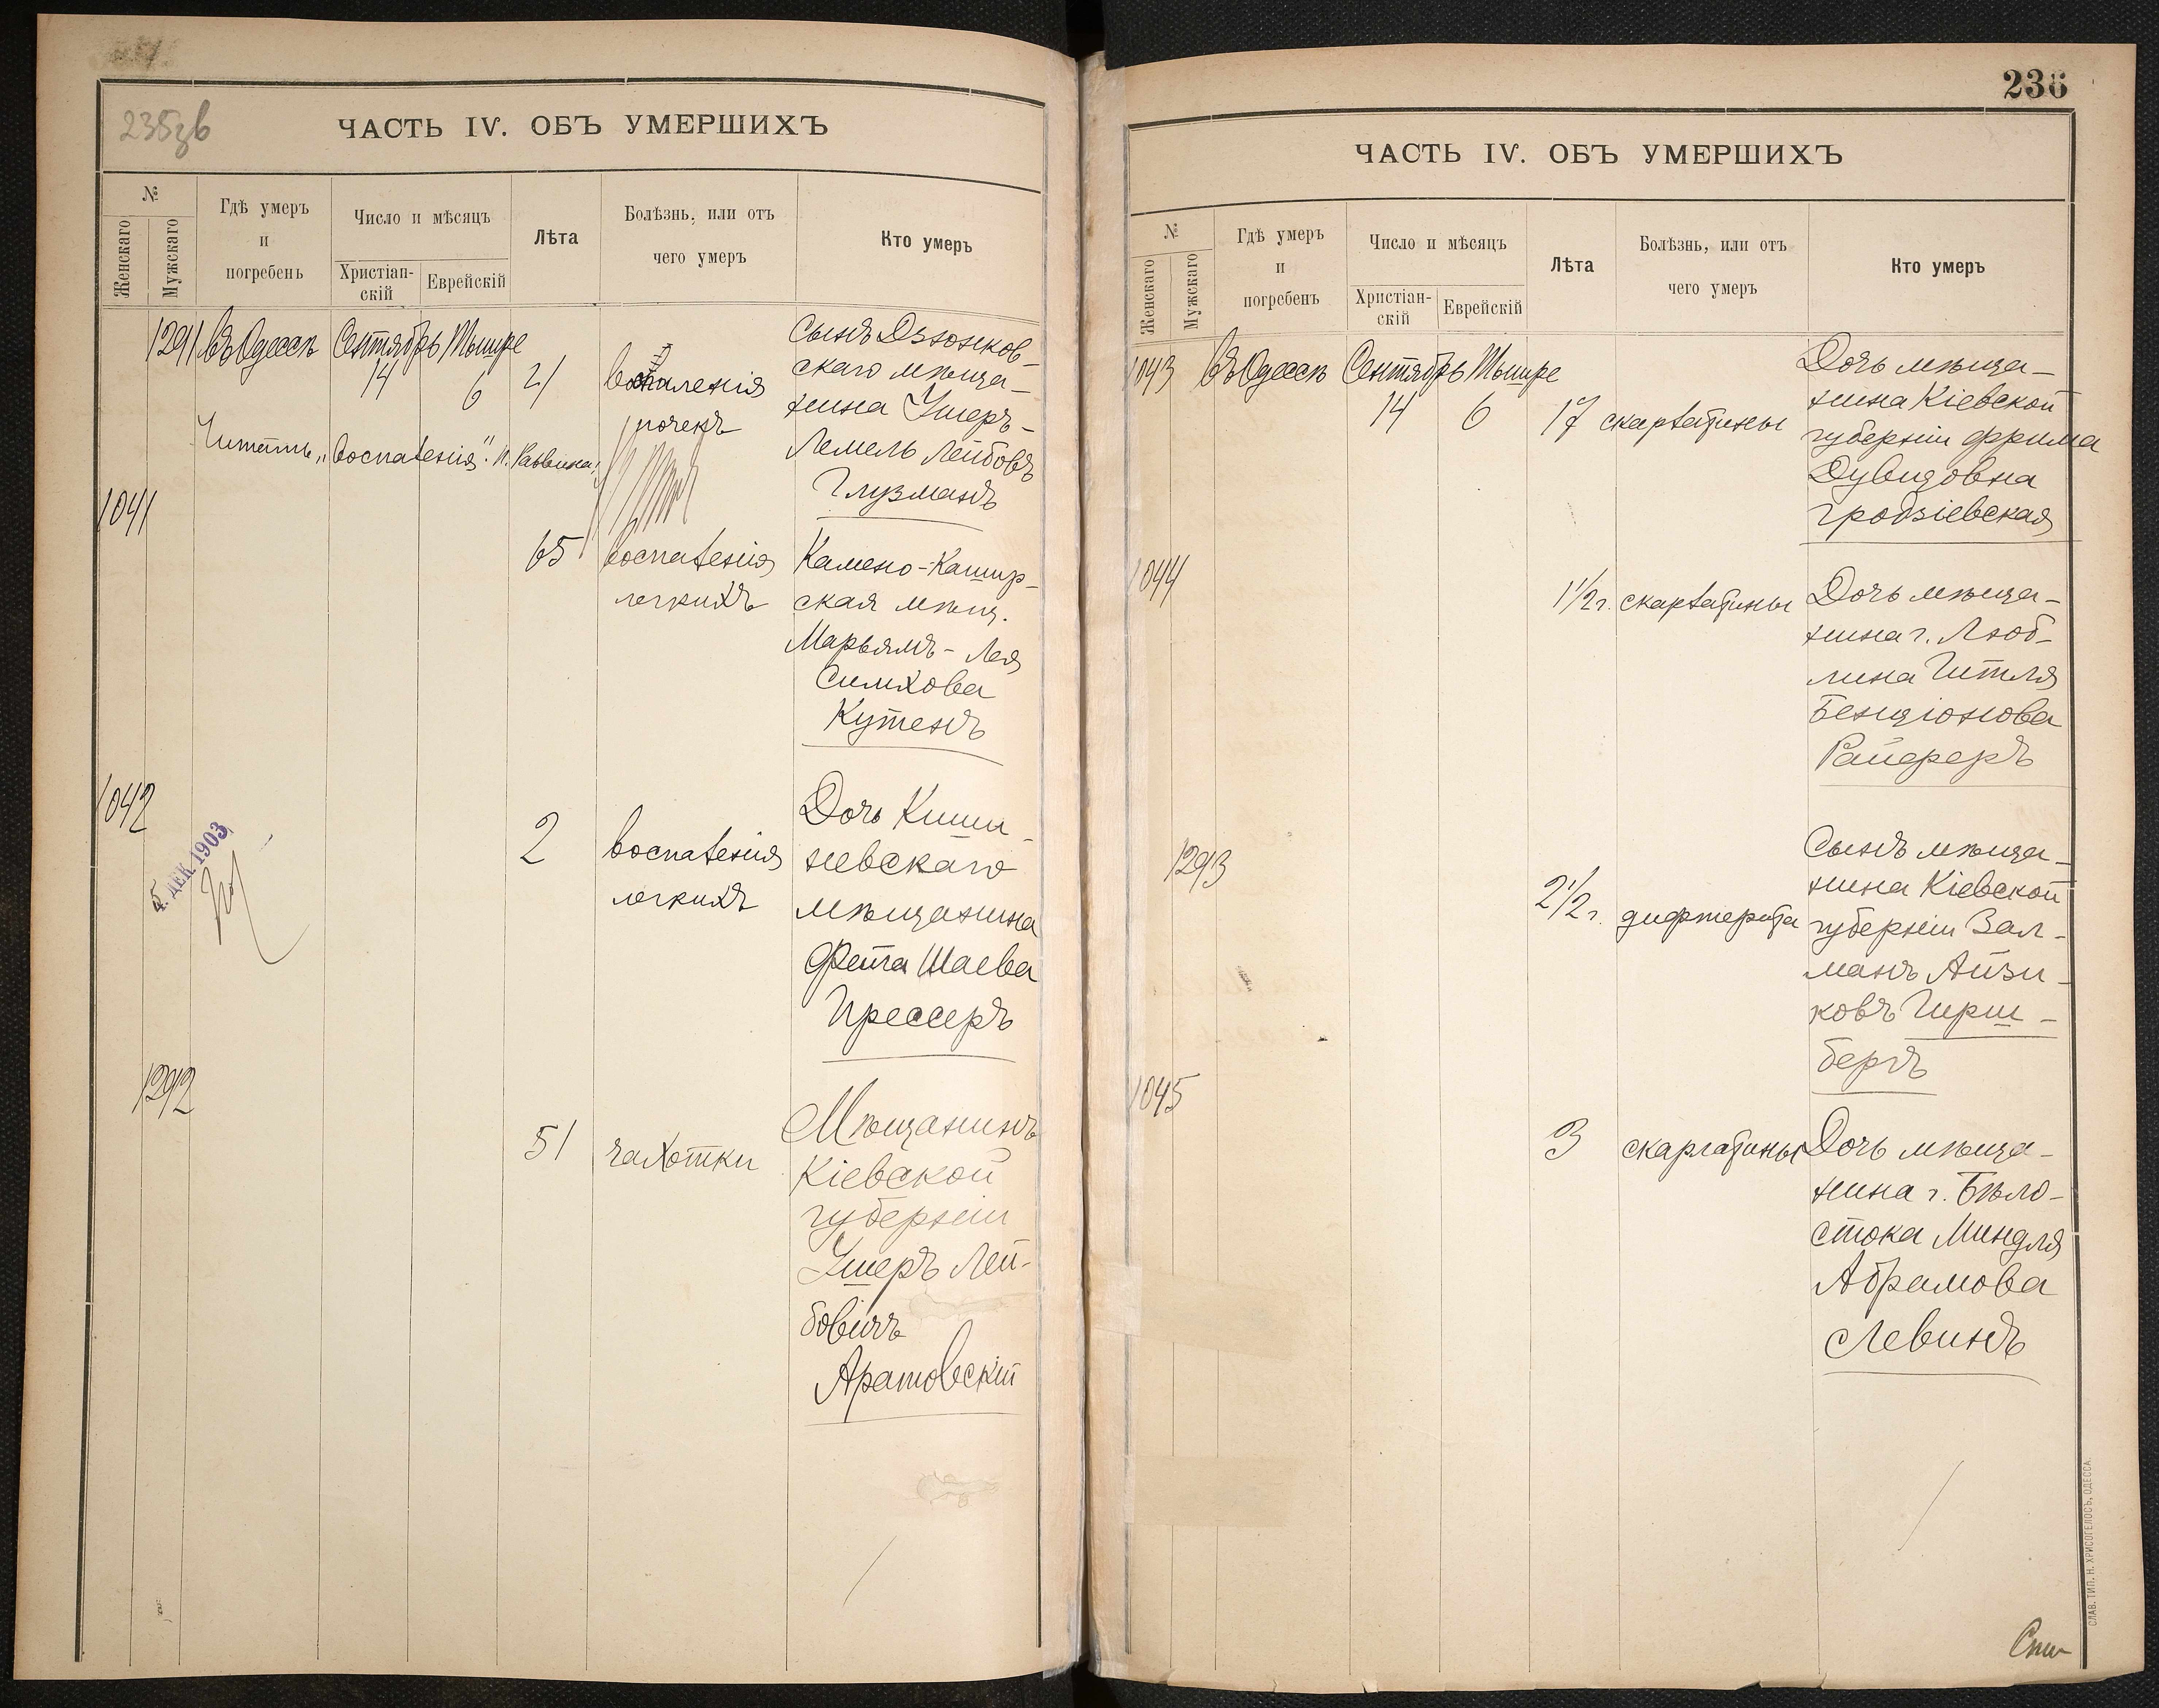 235зв
ЧАСТЬ IV. ОБЪ УМЕРШИХЪ
№
Женскаго
Мужскаго
Гдѣ умеръ
и
погребенъ
Число и мѣсяцъ
Христіан-
скій
Еврейскій
Лѣта
Болѣзнь, или отъ
чего умеръ
Кто умеръ
1291 въ Одессѣ Сентябрь Тышре
14 6 21
воспаленія
почекъ
Сынъ Дзюнков-
скаго мѣща-
нина Ушеръ-
Лемель Лейбовъ
Глузманъ
Читать „воспаленія".
1041
65 воспаленія
легкихъ
Камено-Кашир-
ская мѣщ.
Марьямъ-Лея
Симхова
Кутенъ
1042
2 воспаленія
легкихъ
Дочь Киши-
невскаго
мѣщанина
Фейга Шаева
Прессеръ
5. ДЕК. 1903
1292
51 чахотки
Мѣщанинъ
Кіевской
губерніи
Ушеръ Лей-
бовичъ
Аратовскій
236
ЧАСТЬ IV. ОБЪ УМЕРШИХЪ
№
Женскаго
Мужскаго
Гдѣ умеръ
и
погребенъ
Число и мѣсяцъ
Христіан-
скій
Еврейскій
Лѣта
Болѣзнь, или отъ
чего умеръ
Кто умеръ
1043 въ Одессѣ Сентябрь Тышре
14 6 17 скарлатины
Дочь мѣща-
нина Кіевской
губерніи Фрима
Дувидовна
Гродзіевская
1044
1 1/2 г. скарлатины
Дочь мѣща-
нина г. Люб-
лина Гитля
Бенціонова
Райферъ
1293
2 1/2 г. дифтерита
Сынъ мѣща-
нина Кіевской
губерніи Зал-
манъ Айзи-
ковъ Гирш-
бергъ
1045
3 скарлатины
Дочь мѣща-
нина г. Бѣло-
стока Миндля
Абрамова
Левинъ
СЛАВ. ТИП. Н. ХРИСОГЕЛОСЪ, ОДЕССА.